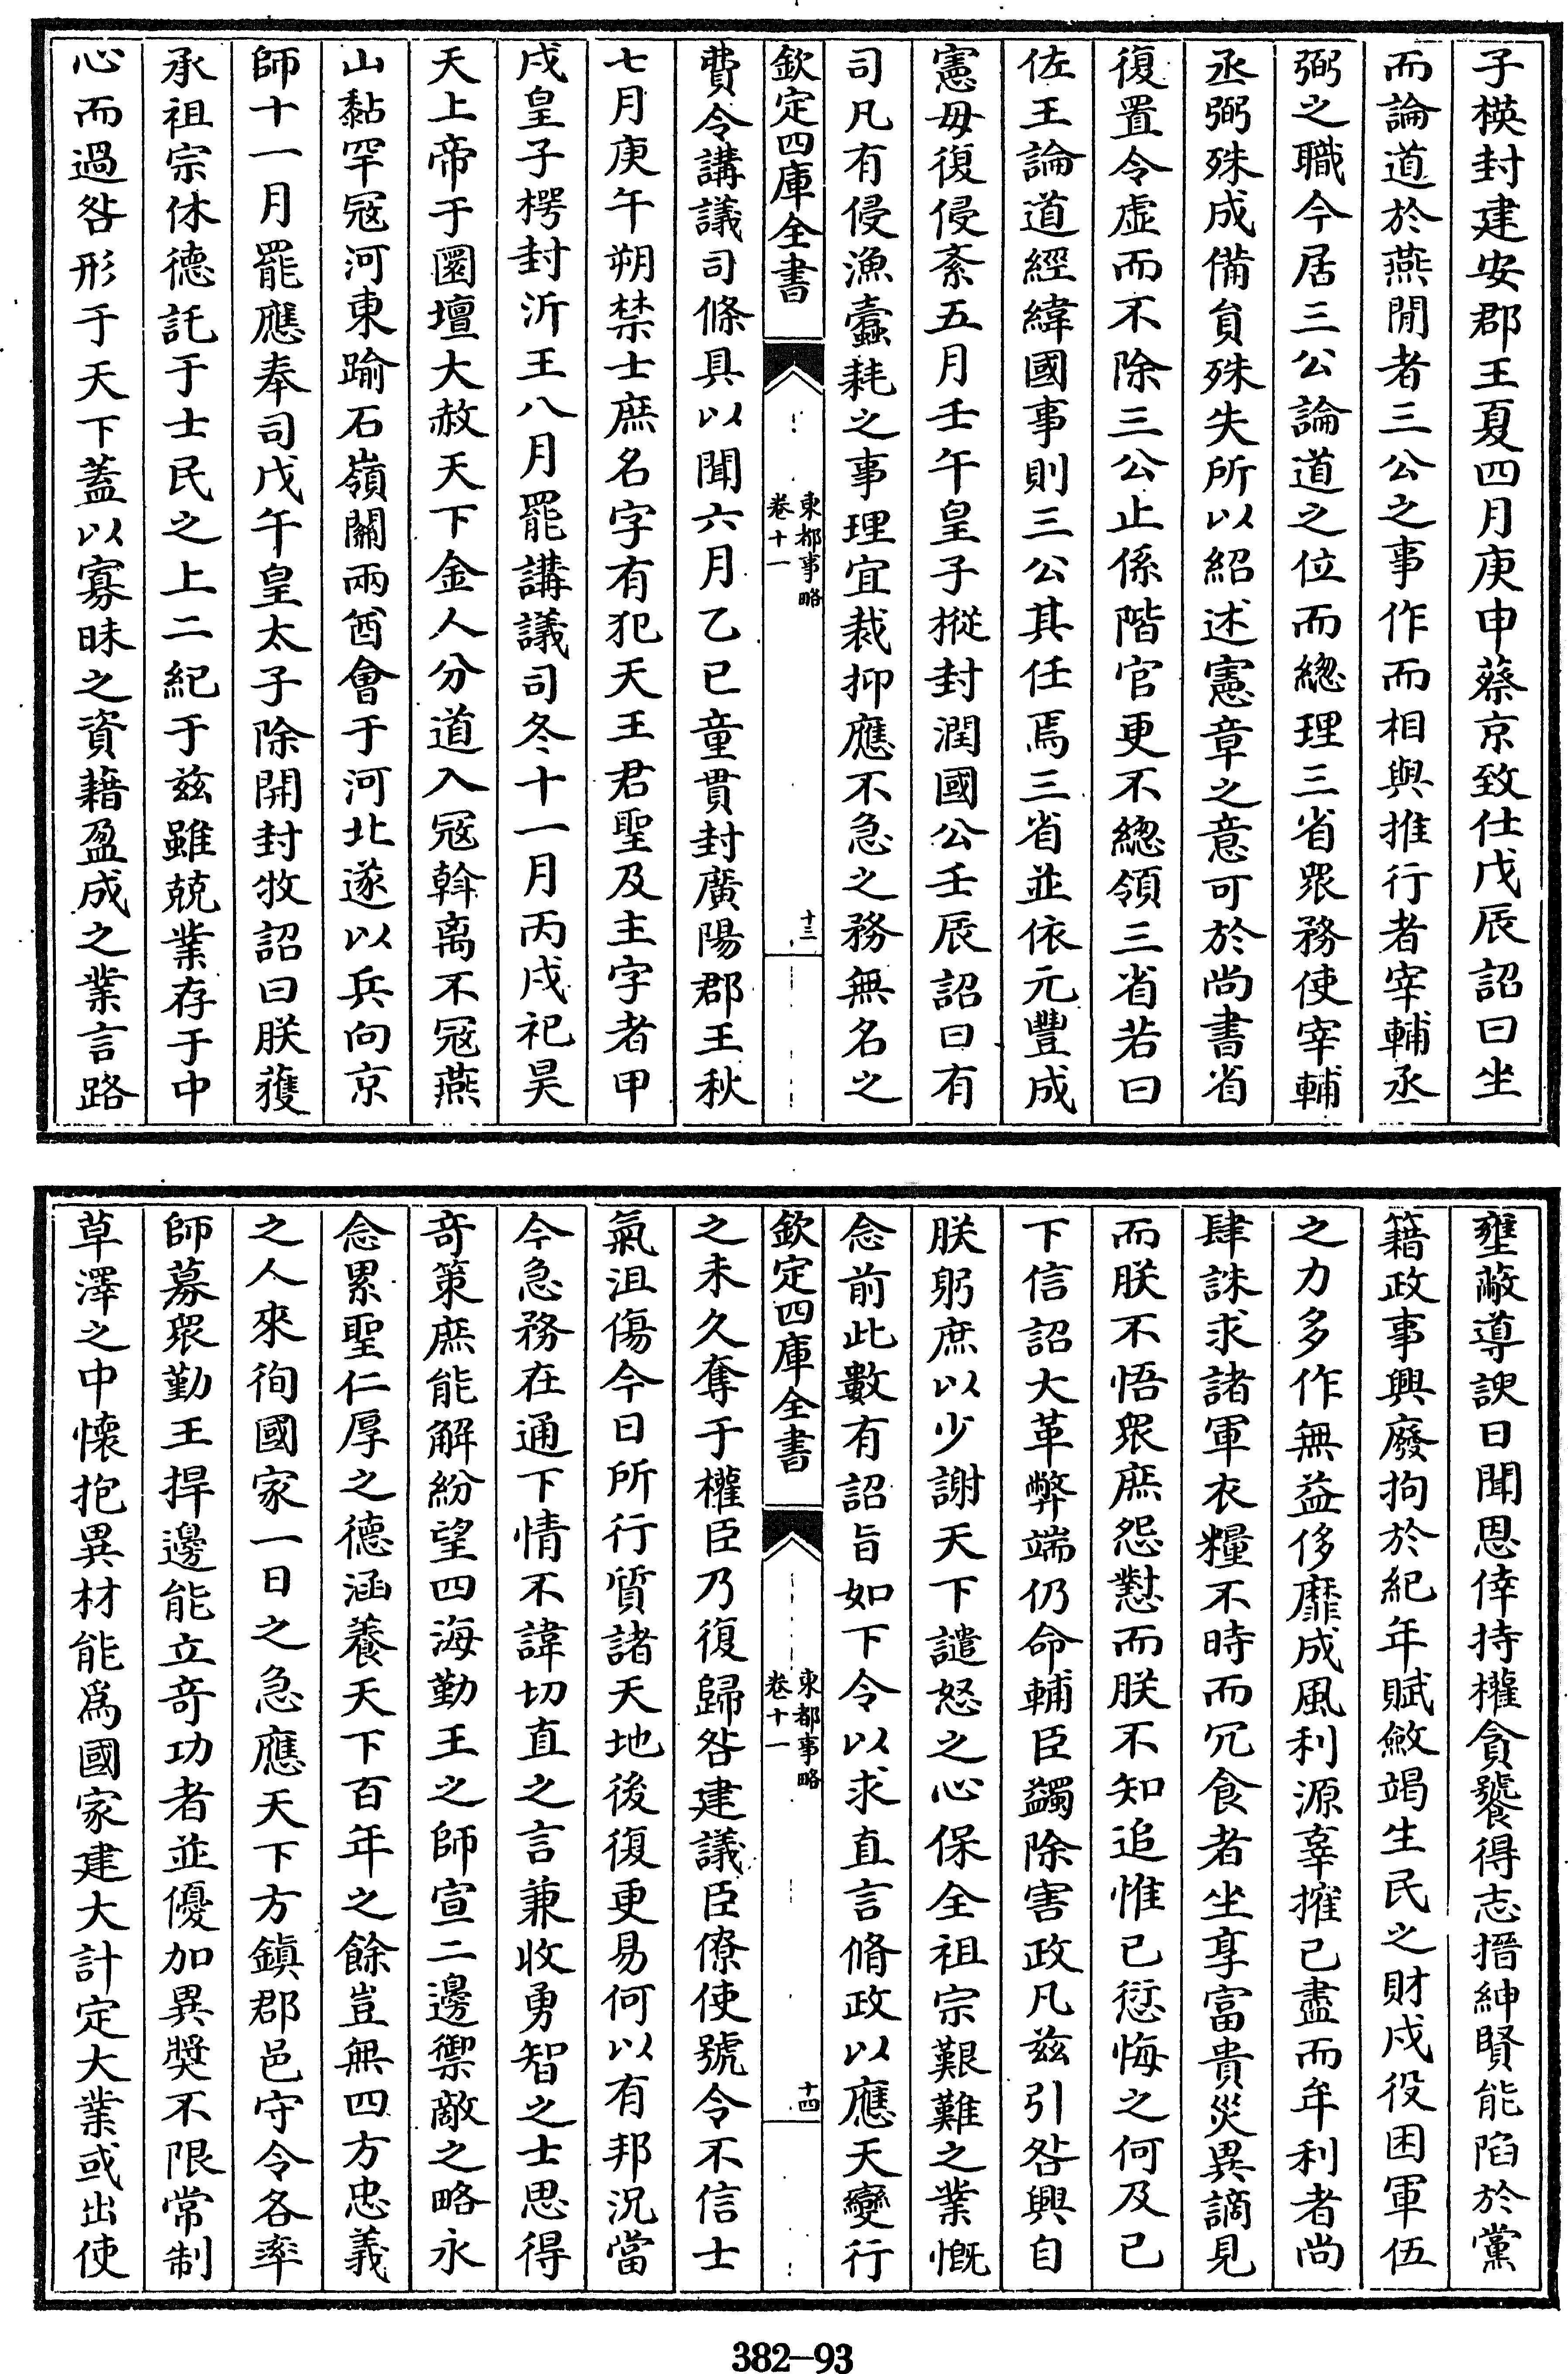 子楧封建安郡王夏四月庚申蔡京致仕戊辰詔曰坐
而論道於燕閒者三公之事作而相與推行者宰輔丞
弼之職今居三公論道之位而總理三省眾務使宰輔
丞弼殊成備負殊失所以紹述憲章之意可於尚書省
復置令虛而不除三公止係階官更不總領三省若曰
佐王論道經緯國事則三公其任焉三省並依元豐成
憲毋復侵紊五月壬午皇子樅封潤國公壬辰詔曰有
司凡有侵漁蠹耗之事理宜裁抑應不急之務無名之
欽定四庫全書
東都事略
卷十一
十三
費令講議司條具以聞六月乙巳童貫封廣陽郡王秋
七月庚午朔禁士庶名字有犯天王君聖及主字者甲
戌皇子楞封沂王八月罷講議司冬十一月丙戌祀昊
天上帝于圜壇大赦天下金人分道入寇斡离不寇燕
山黏罕寇河東踰石嶺關兩酋會于河北遂以兵向京
師十一月罷應奉司戊午皇太子除開封牧詔曰朕獲
承祖宗休德託于士民之上二紀于茲雖兢業存于中
心而過咎形于天下蓋以寡昧之資藉盈成之業言路
壅蔽導諛日聞恩倖持權貪饕得志搢紳賢能陷於黨
籍政事興廢拘於紀年賦斂竭生民之財戍役困軍伍
之力多作無益侈靡成風利源辜搉已盡而牟利者尚
肆誅求諸軍衣糧不時而冗食者坐享富貴災異謫見
而朕不悟眾庶怨懟而朕不知追惟己愆悔之何及已
下信詔大革弊端仍命輔臣蠲除害政凡茲引咎興自
朕躬庶以少謝天下譴怒之心保全祖宗艱難之業慨
念前此數有詔旨如下令以求直言脩政以應天變行
欽定四庫全書
東都事略
卷十一
十四
之未久奪于權臣乃復歸咎建議臣僚使號令不信士
氣沮傷今日所行質諸天地後復更易何以有邦況當
今急務在通下情不諱切直之言兼收勇智之士思得
奇策庶能解紛望四海勤王之師宣二邊禦敵之略永
念累聖仁厚之德涵養天下百年之餘豈無四方忠義
之人來徇國家一日之急應天下方鎮郡邑守令各率
師募眾勤王捍邊能立奇功者並優加異獎不限常制
草澤之中懷抱異材能為國家建大計定大業或出使
382-93